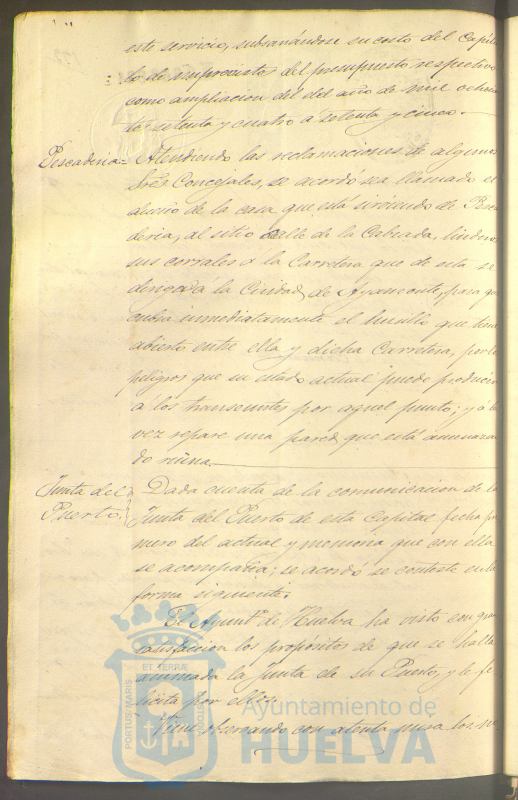 este servicio, subsanandose su costo del Capitu-
lo de imprevistos del presupuesto respectivo
como ampliacion del del año de mil ochocien
tos setenta y cuatro a setenta y cinco.
Pescaderia = Atendiendo las reclamaciones de algunos
Sres Concejales, se acordó sea llamado el
dueño de la casa que está sirviendo de Pesca
deria, al sitio Calle de la Calzada, linderos
sus corrales a la Carretera que de esta se
dirige a la Ciudad de Ayamonte, para que
cubra inmediatamente el husillo que tiene
abierto entre ella y dicha Carretera, por los
peligros que su estado actual puede producir
á los transeuntes por aquel punto; y á la
vez repare una pared que está amenazan
do ruina.
Junta del Puerto. Dada cuenta de la comunicacion de la
Junta del Puerto de esta Capital fecha pri
mero del actual y memoria que con ella
se acompaña; se acordó se conteste en la
forma siguiente.
El Ayuntº de Huelva ha visto con gran
satisfaccion los propósitos de que se halla
animada la Junta de su Puerto y le fe
licita por ellos.
Viene observando con atenta mira los
PORTUS MARIS
ET TERRÆ
CUSTODIA
Ayuntamiento de
HUELVA